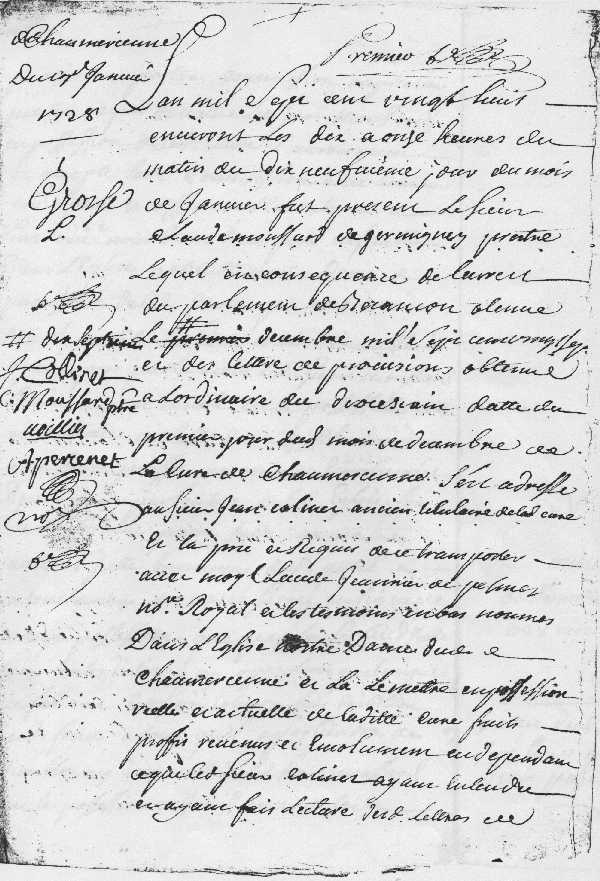 Chaumercenne
Du 19e Janvié
1728
Grosse
L.
# dix septieme
J. Collinet
C. Moussard ptre
A perrenet
Premier
Lan mil Sept cent vingt huit
environt Les dix a onze heures du
matin du Dix neufvieme jour du mois
de Janvier fut present Le Sieur
Claude moussard de germigney prestre
Lequel en consequence de larrest
du parlement de Besancon obtenue
Le premier # decembre mil Sept cent vingt Sept
et des lettre de provisions obtenue
a Lordinaire du diocesain datte du
premier jour dud mois de decembre de
La Cure de Chaumercenne Sest adresse
au Sieur Jean colinet ancien titulaire de lad cure
Et la prie et Requis de ce transporter
avec moy Claude Jeannin de pesmes
nore Royal et les tesmoins en bas nommes
Dans L'Eglise nostre Dame dud
Chaumercenne et La Le mettre en possession
reelle et actuelle de laditte cure fruits
proffis revenus et Emolument en dependant
ce que led Sieur colinet ayant entendu
et ayant fait Lecture desd. Lettres de